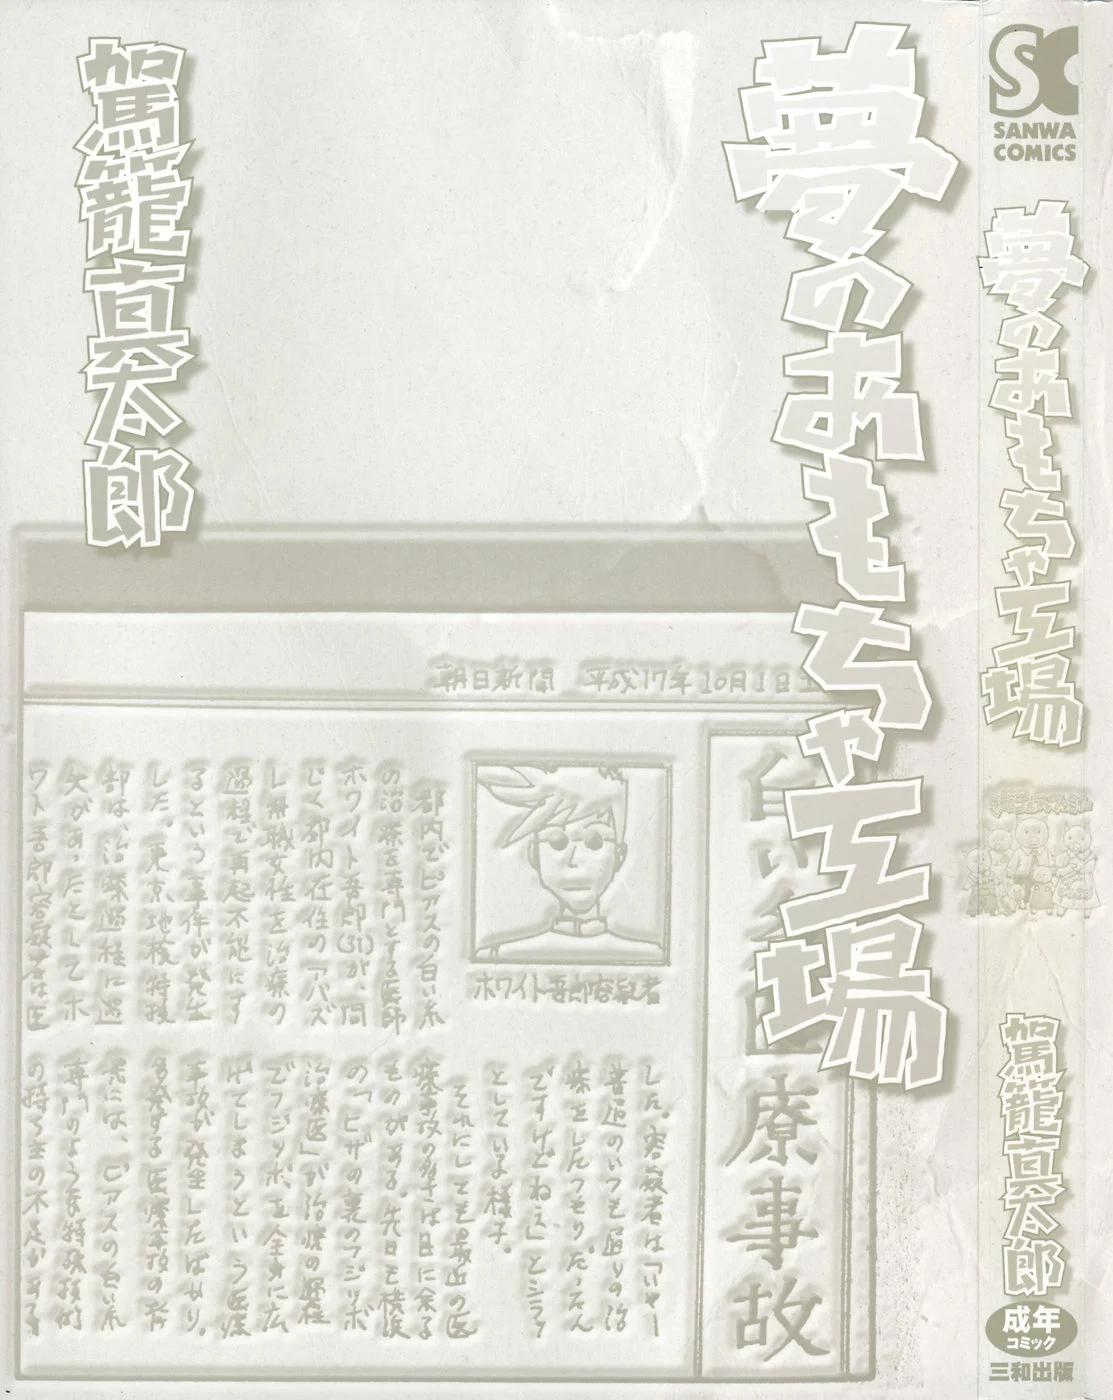 夢のおもちゃ工場
駕籠真太郎
朝日新聞 平成17年10月1日土
白い糸医療事故
ホワイト吾郎容疑者
都内でピアスの白い糸
の治療を専門とする医師
ホワイト吾郎(31)が、同
じく都内在住のアバズ
レ無職女性を治療の
過程で再起不能にす
るという事件が発生
した。東京地検特捜
部は、治療過程に過
失があったとしてホ
ワイト吾郎容疑者は医
した。容疑者は「いやー
普通のいつも通りの治
療をしたつもりだったん
ですけどねえ」とシラッ
としている様子。
それにしても最近の医
療事故の多さは目に余る
ものがある。先日も横浜
の「ヒザの裏のフジツボ
治療医」が治療の過程
でフジツボを全身に広
げてしまうという医療
事故が発生したばかり。
多発する医療事故の背
景には、ピアスの白い糸
専門のような特殊技術
の持ち主の不足がある
SC
SANWA
COMICS
夢のおもちゃ工場
駕籠真太郎
成年
コミック
三和出版